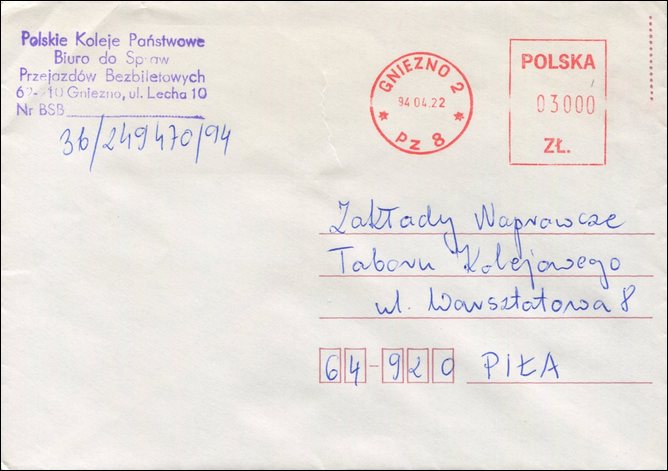 Polskie Koleje Państwowe
Biuro do Spraw
Przejazdów Bezbiletowych
Gniezno, ul. Lecha 10
Nr BSB
3b/249470/94
GNIEZNO 2
94 04.22
PZ 8
POLSKA
03000
ZŁ.
Zakłady Naprawcze
Taboru Kolejowego
ul. Warsztatowa 8
64-920 PIŁA